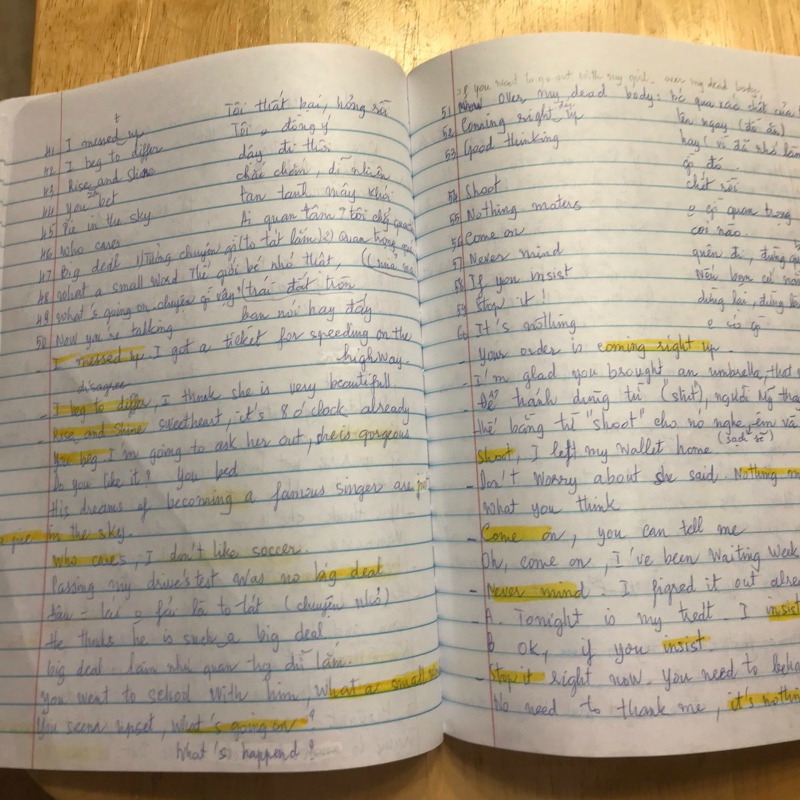 41 I messed up Tôi thất bại, hỏng rồi
42 I beg to differ Tôi o đồng ý
43 Rise and shine dậy đi thôi
44 You bet chắc chắn, dĩ nhiên
45 Pie in the sky tan tành mây khói
46 Who cares Ai quan tâm? tôi chả quan
47 Big deal 1) Tưởng chuyện gì (to tát lắm) 2) Quan trọng
48 What a small word Thế giới bé nhỏ thật,
49 What's going on chuyện gì vậy? (trái đất tròn
50 Now you're talking bạn nói hay đấy
- I messed up I got a ticket for speeding on the
highway.
disagree
I beg to differ, I think she is very beautifull
Rise and Shine sweetheart, it's 8 o'clock already
You beg I'm going to ask her out, she is gorgeous
Do you like it? You bed
His dreams of becoming a famous singer are just
pie in the sky.
Who cares, I don't like soccer
Passing my drive's test was no big deal
đâu - lái o fải là to tát (chuyện nhỏ)
He thinks he is such a big deal
big deal làm như quan trọng dữ lắm
You went to school with him, what a small
You seem upset, what's going on?
What's happend?
If you want to go out with my girl. over my dead body
51 over my dead body: bước qua xác chết của
52 Coming right up lên ngay (đồ ăn)
53 Good thinking hay! vì đã nhớ
54 Shoot chết rồi
55 Nothing maters o có quan trọng
56 Come on coi nào
57 Never mind quên đi, đừng
58 If you insist Nếu bạn cứ
59 Stop it! dừng lại, đừng
60 It's nothing o có gì
Your order is coming right up
- I'm glad you brought an umbrella, that
- Để tránh dùng từ (shit), người Mỹ
thế bằng từ "shoot" cho nó nghe êm
shoot, I left my wallet home
- Don't worry about she said. Nothing
what you think
- Come on, you can tell me
Oh, come on, I've been waiting week
- Never mind. I figred it out
- A. Tonight is my tredt. I insist
B OK, if you insist
- Stop it right now. You need to
No need to thank me, it's nothing